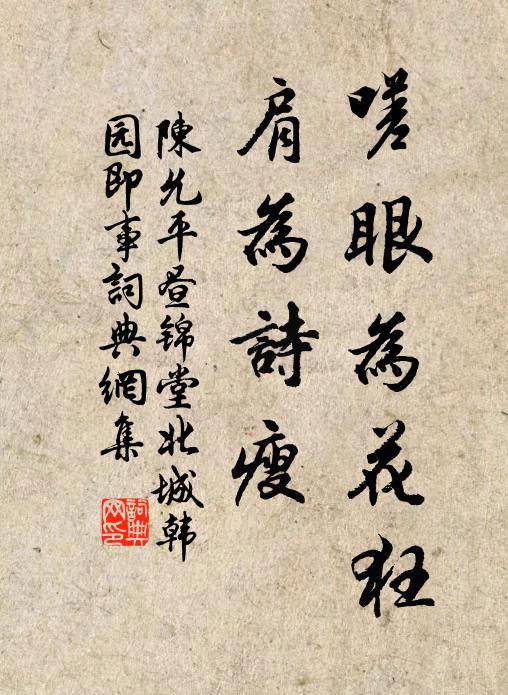 嗟眼為花狂
肩為詩瘦
陳允平昼锦堂北城韩
园即事詞典網集
詞典
网印